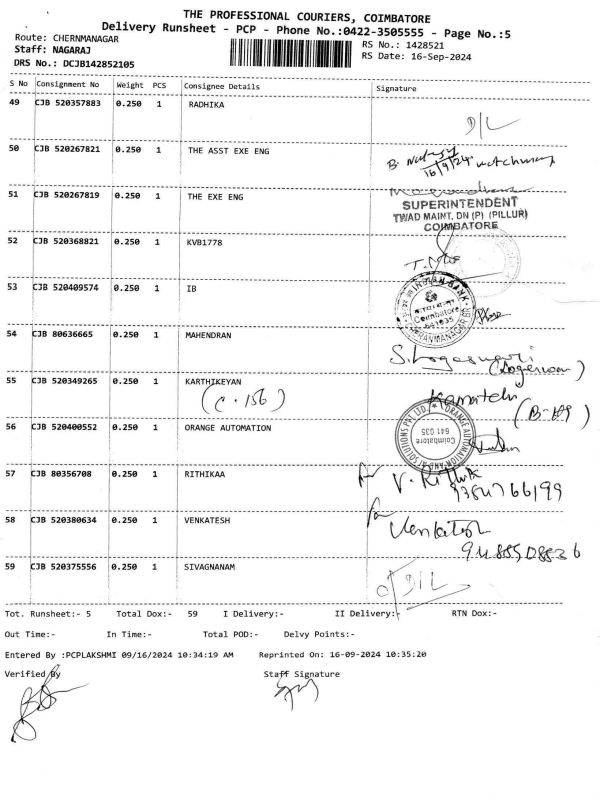 THE PROFESSIONAL COURIERS, COIMBATORE
Delivery Runsheet - PCP - Phone No.:0422-3505555 - Page No.:5
Route: CHERNMANAGAR
RS No.: 1428521
Staff: NAGARAJ
RS Date: 16-Sep-2024
DRS No.: DCJB142852105
S No Consignment No Weight PCS Consignee Details Signature
49 CJB 520357883 0.250 1 RADHIKA
D/L
50 CJB 520267821 0.250 1 THE ASST EXE ENG
16/9/24 watchman
51 CJB 520267819 0.250 1 THE EXE ENG
SUPERINTENDENT
TWAD MAINT, DN (P) (PILLUR)
COIMBATORE
52 CJB 520368821 0.250 1 KVB1778
53 CJB 520409574 0.250 1 IB
INDIAN BANK
Coimbatore
641035
54 CJB 80636665 0.250 1 MAHENDRAN
55 CJB 520349265 0.250 1 KARTHIKEYAN
(C-156)
56 CJB 520400552 0.250 1 ORANGE AUTOMATION
ORANGE AUTOMATION AND AI SOLUTIONS PVT LTD.
Coimbatore
641 035
57 CJB 80356708 0.250 1 RITHIKAA
for V. Rithik
58 CJB 520380634 0.250 1 VENKATESH
for Venkatesh
59 CJB 520375556 0.250 1 SIVAGNANAM
D/L
Tot. Runsheet:- 5 Total Dox:- 59 I Delivery:- II Delivery:- RTN Dox:-
Out Time:- In Time:- Total POD:- Delvy Points:-
Entered By :PCPLAKSHMI 09/16/2024 10:34:19 AM Reprinted On: 16-09-2024 10:35:20
Verified By Staff Signature